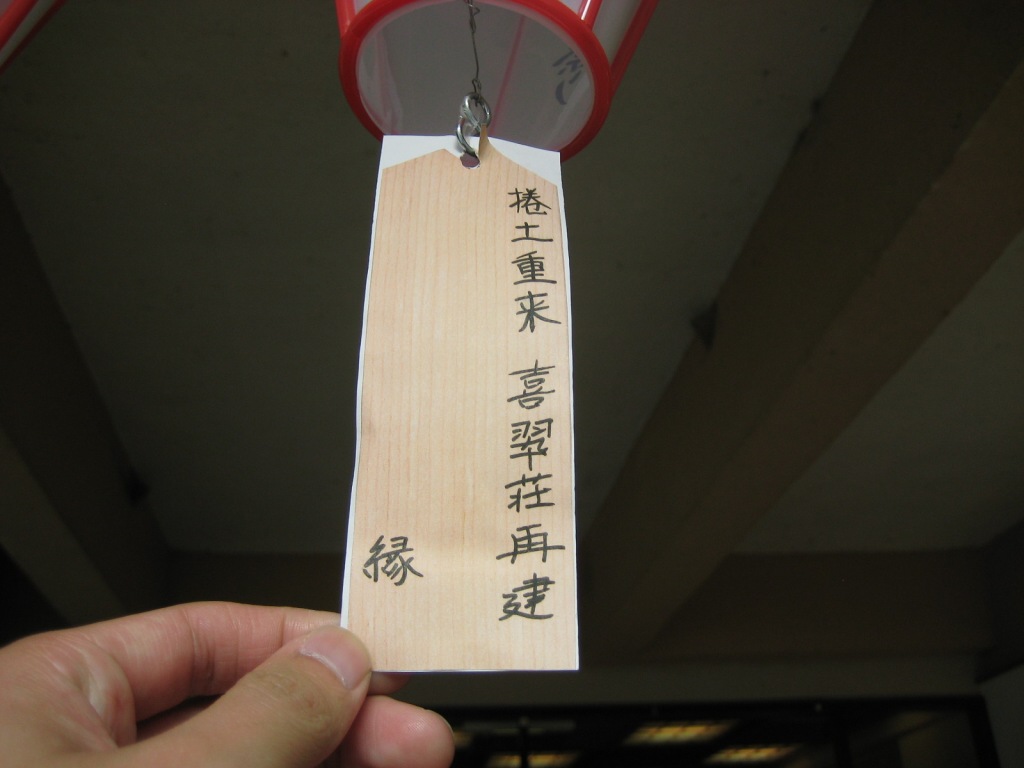 捲土重来 喜翆荘再建
縁